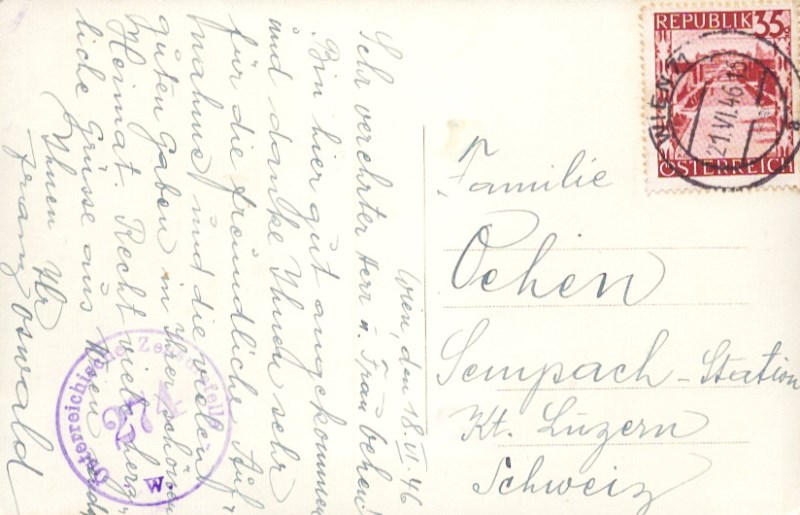 Wien, den 18. VI. 46
Sehr verehrter Herr u. Frau Ochen!
Bin hier gut angekommen
und danke Ihnen sehr
für die freundliche Auf-
nahme und die vielen
guten Gaben in Ihrer schönen
Heimat. Recht viele herz-
liche Grüsse aus Wien sendet
Ihnen Ihr
Franz Oswald
REPUBLIK 35
ÖSTERREICH
WIEN
21.VI.46
a
Familie
Ochen
Sempach-Station
Kt. Luzern
Schweiz
Österreichische Zensurstelle
W